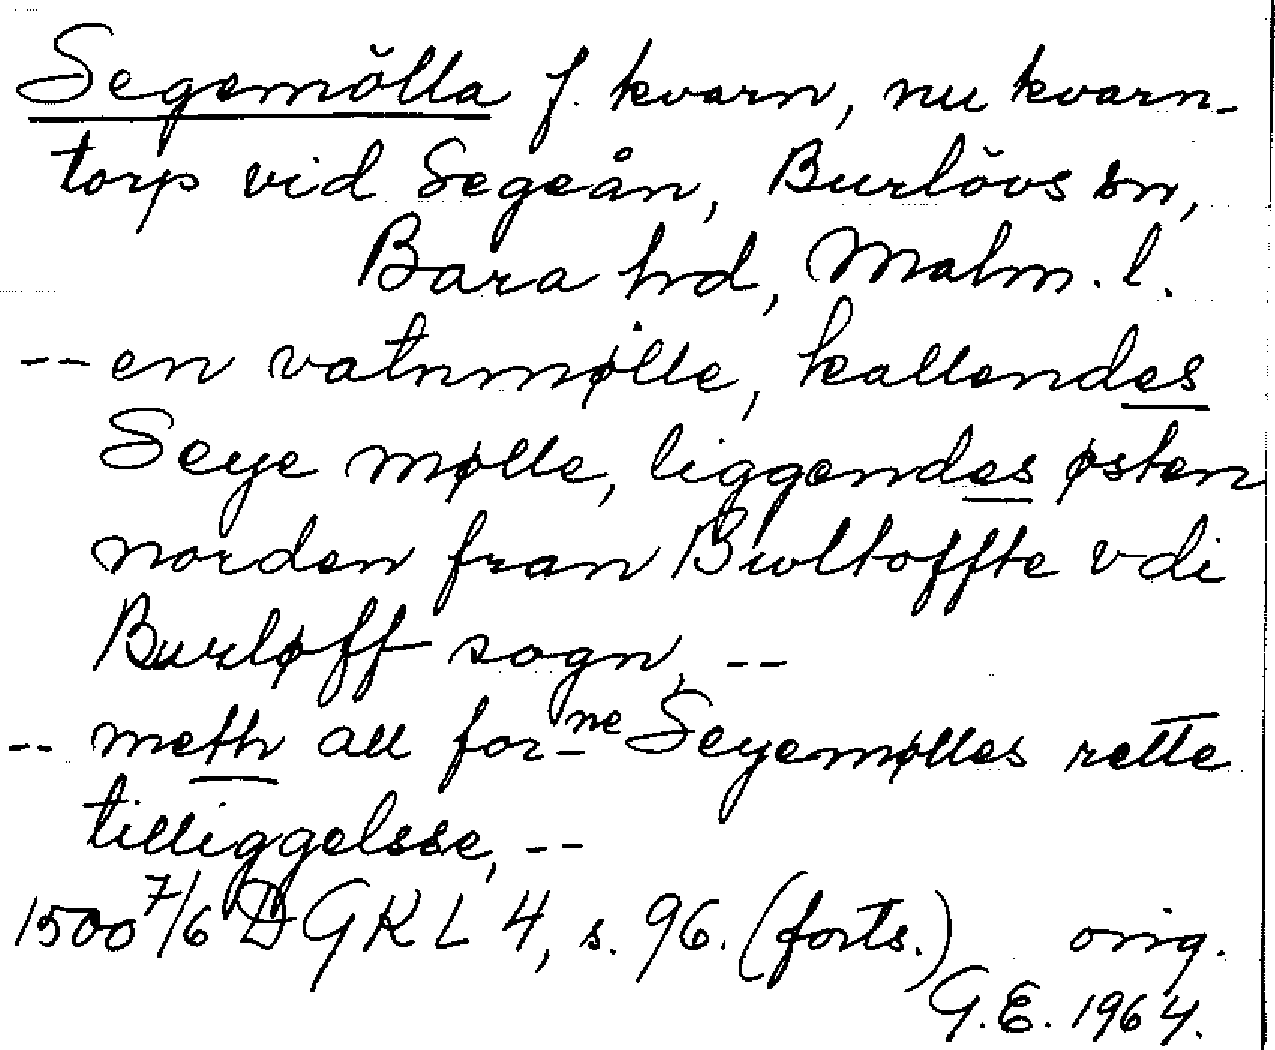 Segemölla f. kvarn, nu kvarn-
torp vid Segeån, Burlövs sn,
Bara hd, Malm. l.
-- en vatnmølle, kallendes
Seye mølle, liggendes østen
norden fran Bwltoffte vdi
Burløff sogn, --
-- meth all for-ne Seyemølles rette
tilliggelsse, --
1500 7/6 DGKL 4, s. 96. (forts.) orig.
G.E. 1964.